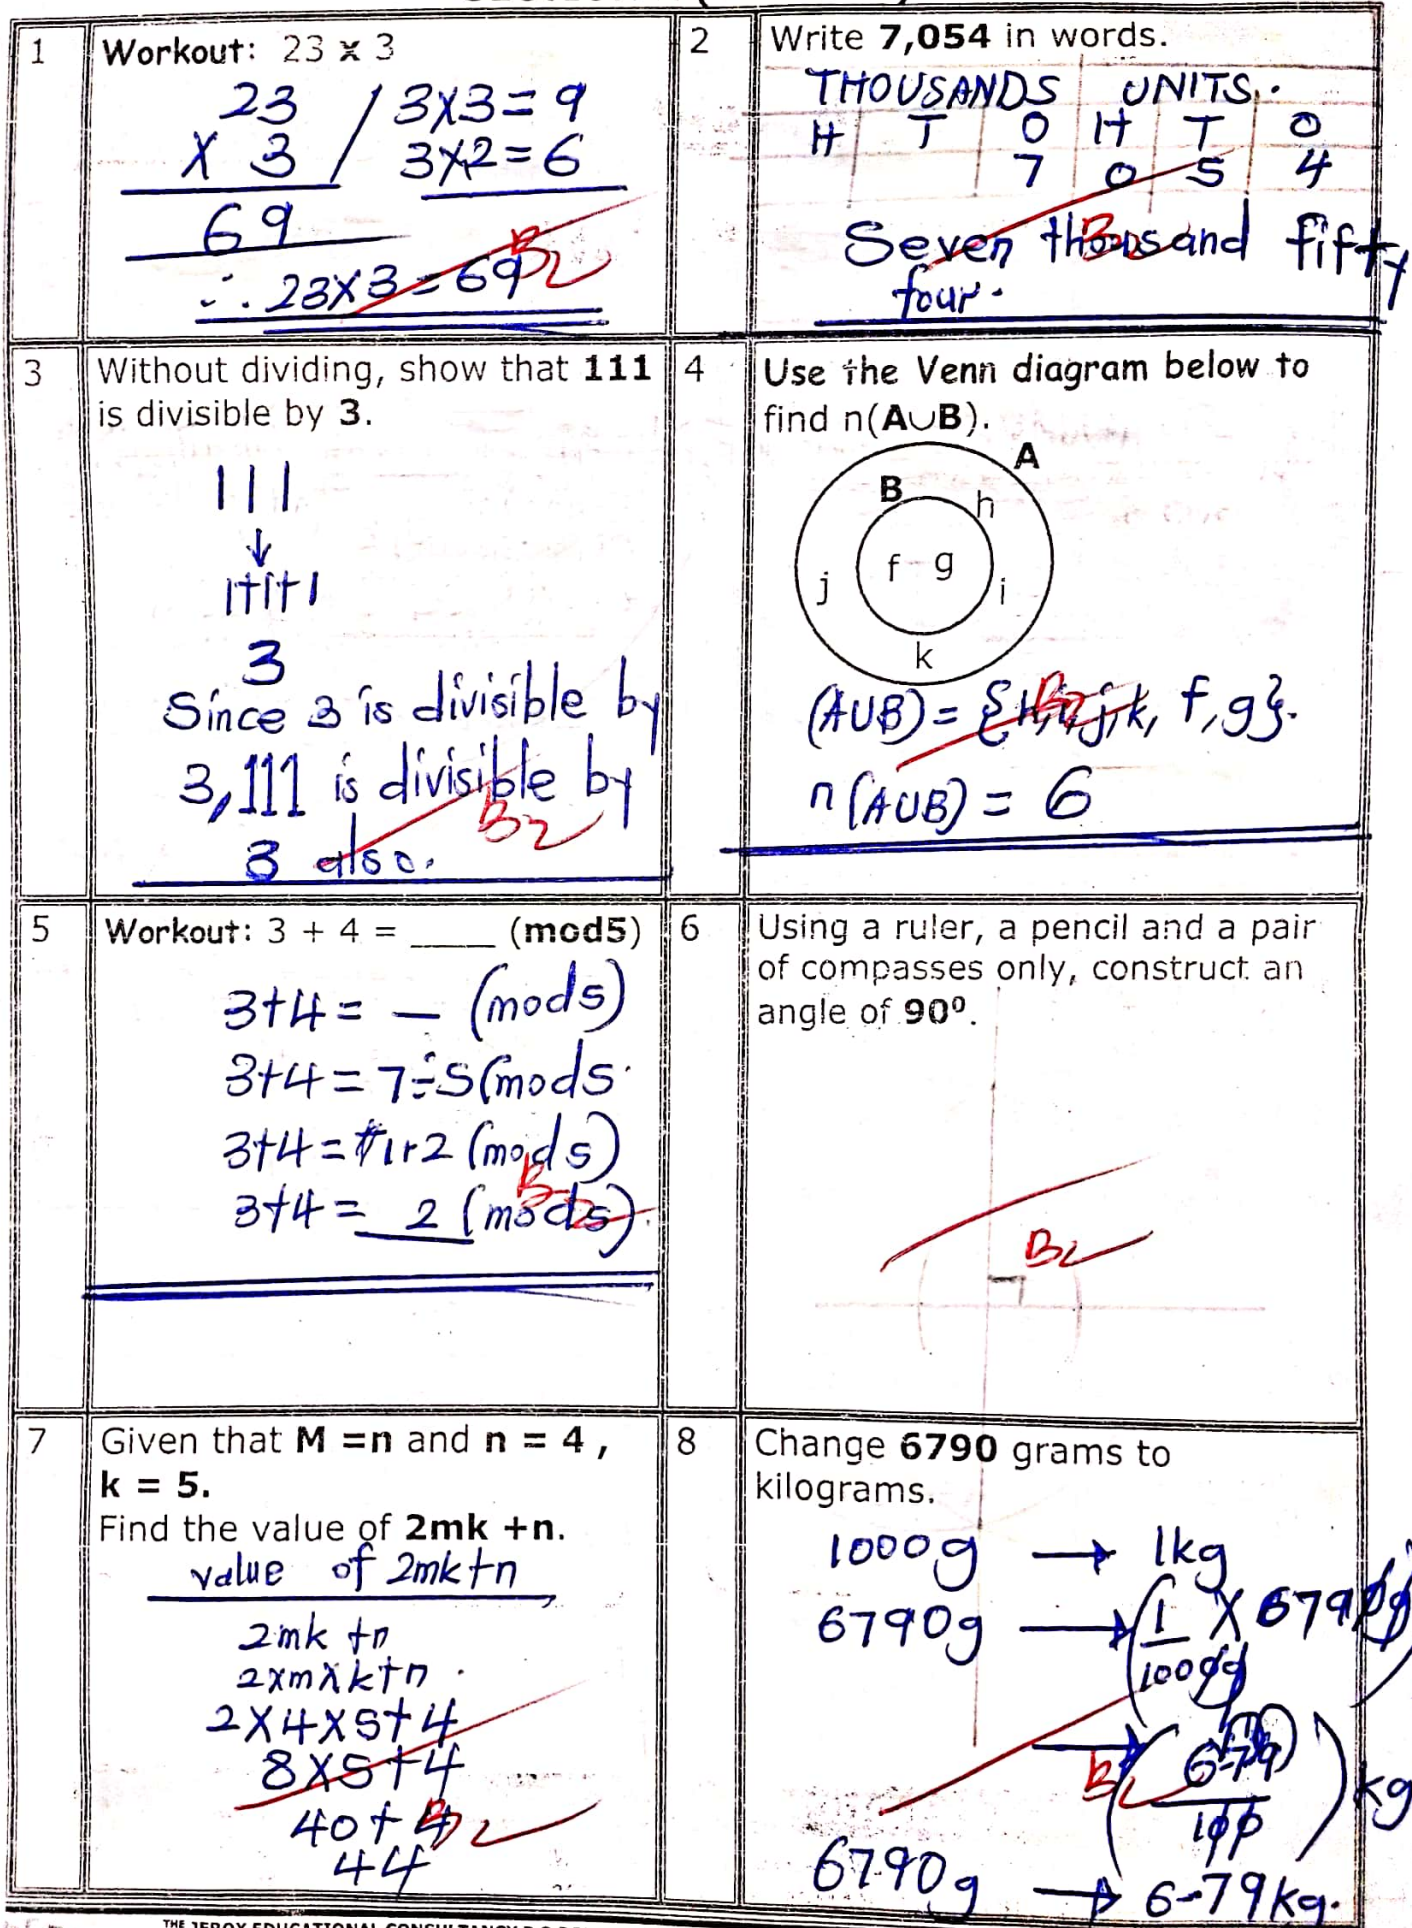 1
Workout: 23 x 3
23 / 3x3=9
x 3 / 3x2=6
69
∴ 23x3=69
B2
2
Write 7,054 in words.
THOUSANDS UNITS.
H T O H T O
7 0 5 4
Seven thousand fifty
four.
B2
3
Without dividing, show that 111
is divisible by 3.
111
↓
1+1+1
3
Since 3 is divisible by
3,111 is divisible by
3 also.
B2
4
Use the Venn diagram below to
find n(A∪B).
A
B
h
f g
j
i
k
(A∪B)= {H,i,j,k, f,g}.
B2
n(A∪B) = 6
5
Workout: 3 + 4 = ____ (mod5)
3+4= — (mod5)
3+4=7÷5(mod5
3+4=1r2 (mod5)
3+4= 2 (mod5).
B2
6
Using a ruler, a pencil and a pair
of compasses only, construct an
angle of 90⁰.
B2
7
Given that M =n and n = 4 ,
k = 5.
Find the value of 2mk +n.
value of 2mk+n
2mk +n
2xmxk+n
2x4x5+4
8x5+4
40+4
B2
44
8
Change 6790 grams to
kilograms.
1000g → 1kg
6790g → (1/1000g x 6790g)
→ (679/100) kg
B2
6790g → 6-79kg.